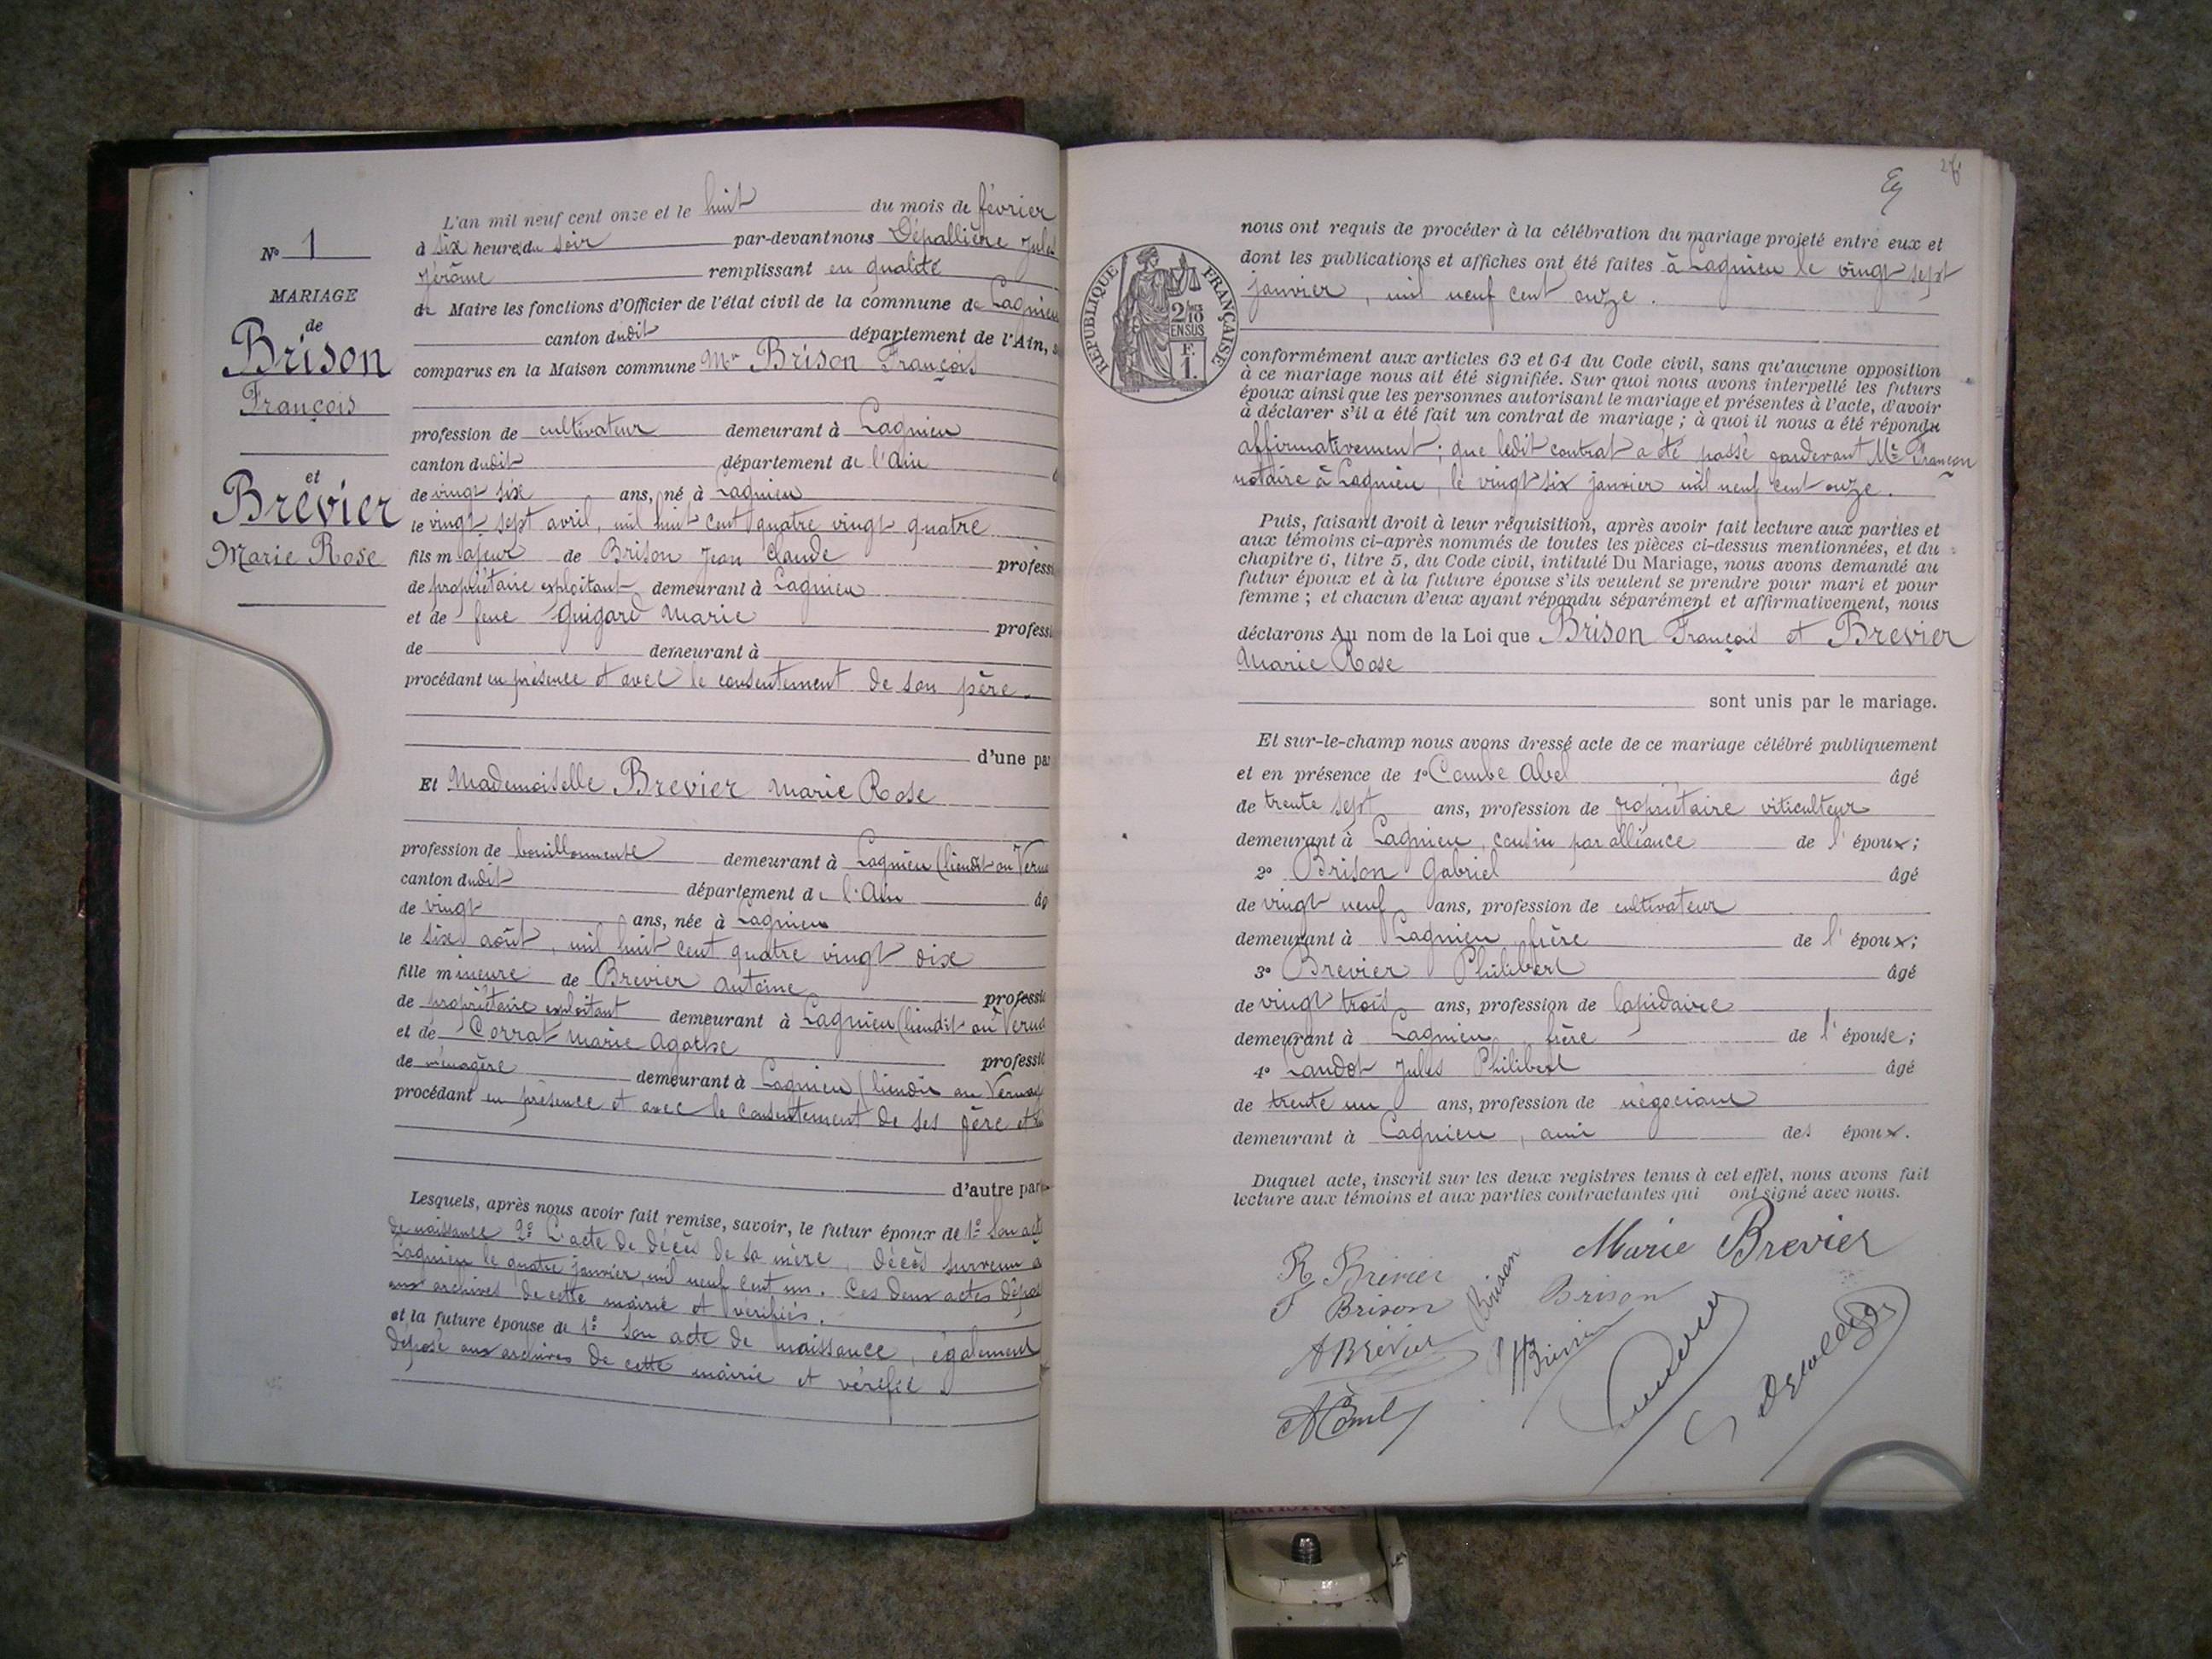 N° 1
MARIAGE
de
Brison
François
et
Brévier
Marie Rose
L'an mil neuf cent onze et le huit du mois de février
à six heures du soir par-devant nous Dépallière Jules
Jérôme remplissant en qualité
de Maire les fonctions d'Officier de l'état civil de la commune de Lagnieu
canton dudit département de l'Ain,
comparus en la Maison commune Mr Brison François
profession de cultivateur demeurant à Lagnieu
canton dudit département de l'Ain
de vingt six ans, né à Lagnieu
le vingt sept avril, mil huit cent quatre vingt quatre
fils majeur de Brison Jean Claude professi
de propriétaire exploitant demeurant à Lagnieu
et de feue Guigard Marie professi
de demeurant à
procédant en présence et avec le consentement de son père.
d'une par
Et Mademoiselle Brevier Marie Rose
profession de demeurant à Lagnieu (lieudit au Verna
canton dudit département de l'Ain âg
de vingt ans, née à Lagnieu
le six août, mil huit cent quatre vingt dix
fille mineure de Brevier Antoine professi
de propriétaire exploitant demeurant à Lagnieu (lieudit au Verna
et de Corrat Marie Agathe professi
de ménagère demeurant à Lagnieu (lieudit au Vernay
procédant en présence et avec le consentement de ses père et
d'autre part
Lesquels, après nous avoir fait remise, savoir, le futur époux de 1° Son acte
de naissance 2° L'acte de décès de sa mère, décès survenu à
Lagnieu le quatre janvier, mil neuf cent un. Ces deux actes dépos
aux archives de cette mairie et vérifiés.
et la future épouse de 1° Son acte de naissance, également
déposé aux archives de cette mairie et vérifié
RÉPUBLIQUE FRANÇAISE
2/10
EN SUS
F.
1.
nous ont requis de procéder à la célébration du mariage projeté entre eux et
dont les publications et affiches ont été faites à Lagnieu le vingt sept
janvier, mil neuf cent onze.
conformément aux articles 63 et 64 du Code civil, sans qu'aucune opposition
à ce mariage nous ait été signifiée. Sur quoi nous avons interpellé les futurs
époux ainsi que les personnes autorisant le mariage et présentes à l'acte, d'avoir
à déclarer s'il a été fait un contrat de mariage ; à quoi il nous a été répondu
affirmativement ; que ledit contrat a été passé pardevant Me Françon
notaire à Lagnieu, le vingt six janvier mil neuf cent onze.
Puis, faisant droit à leur réquisition, après avoir fait lecture aux parties et
aux témoins ci-après nommés de toutes les pièces ci-dessus mentionnées, et du
chapitre 6, titre 5, du Code civil, intitulé Du Mariage, nous avons demandé au
futur époux et à la future épouse s'ils veulent se prendre pour mari et pour
femme ; et chacun d'eux ayant répondu séparément et affirmativement, nous
déclarons Au nom de la Loi que Brison François et Brevier
Marie Rose
sont unis par le mariage.
Et sur-le-champ nous avons dressé acte de ce mariage célébré publiquement
et en présence de 1° Combe Abel âgé
de trente sept ans, profession de propriétaire viticulteur
demeurant à Lagnieu, cousin par alliance de l'époux ;
2° Brison Gabriel âgé
de vingt neuf ans, profession de cultivateur
demeurant à Lagnieu frère de l'époux ;
3° Brevier Philibert âgé
de vingt trois ans, profession de lapidaire
demeurant à Lagnieu, frère de l'épouse ;
4° Landot Jules Philibert âgé
de trente un ans, profession de négociant
demeurant à Lagnieu, ami des époux.
Duquel acte, inscrit sur les deux registres tenus à cet effet, nous avons fait
lecture aux témoins et aux parties contractantes qui ont signé avec nous.
Marie Brevier
R Brevier
Brison
Brison
F Brison
A Brévier